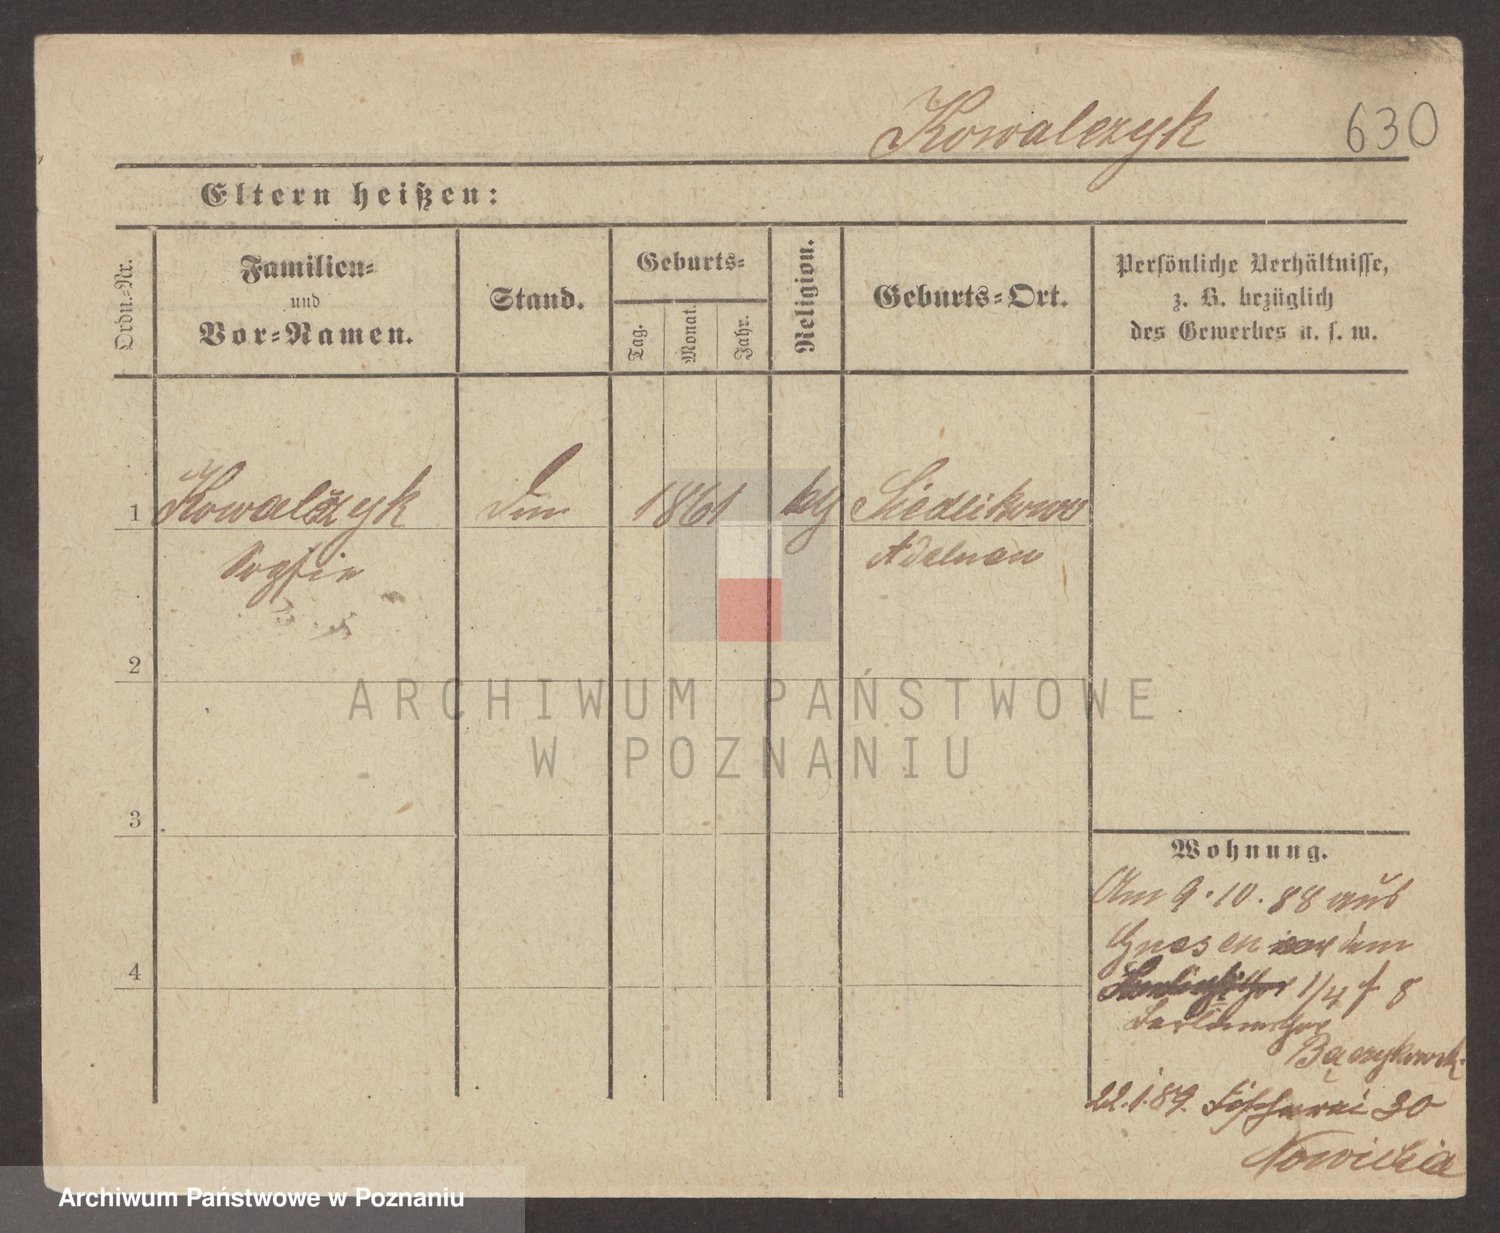 Kowalczyk 630
Eltern heißen:
Ordn.-Nr.
Familien-
und
Vor-Namen.
Stand.
Geburts-
Tag.
Monat.
Jahr.
Religion.
Geburts-Ort.
Persönliche Verhältnisse,
z. B. bezüglich
des Gewerbes u. s. w.
1 Kowalczyk 1861 Siedlikowo
Sophie Adelnau
2
3
4
ARCHIWUM PAŃSTWOWE
W POZNANIU
Wohnung.
Am 9.10.88 aus
Gnesen
1/4 f 8
Berlinerthor
22.1.89. Fischerei 30
Nowicka
Archiwum Państwowe w Poznaniu